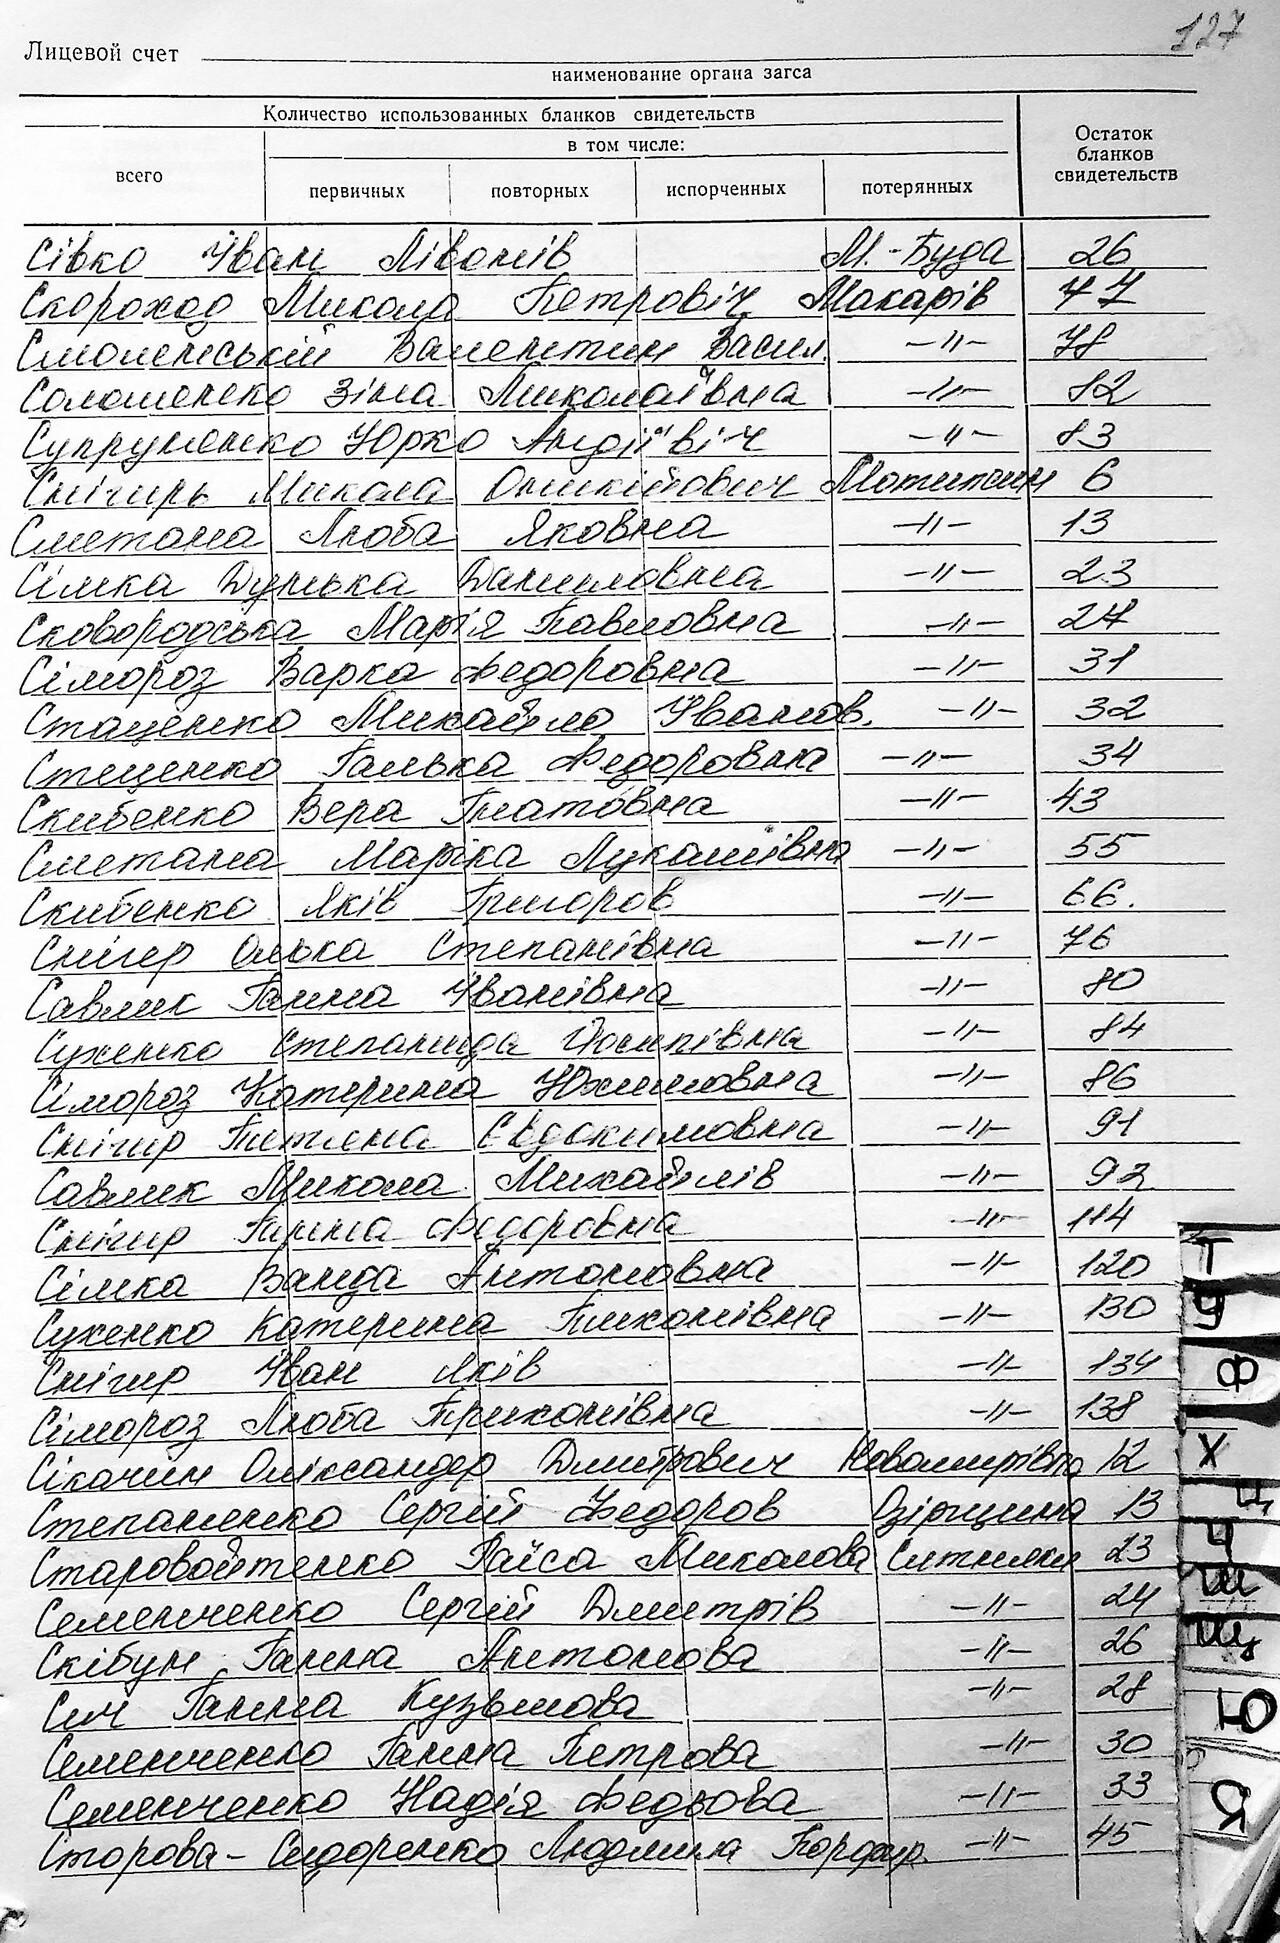 127
Лицевой счет
наименование органа загса
Количество использованных бланков свидетельств
в том числе:
всего
первичных
повторных
испорченных
потерянных
Остаток
бланков
свидетельств
Сівко Іван Лівонів М.-Буда 26
Скороход Микола Петровіч Макарів 77
Смоленській Валентин Васил. -"- 78
Соломенко Зіна Миколаївна -"- 82
Супруненко Юрко Андіївіч -"- 83
Снігирь Микола Оникійович Мотижин 6
Сметана Люба Яковна -"- 13
Сімка Дунька Даниловна -"- 23
Сковородська Марія Павловна -"- 24
Сімороз Варка Федоровна -"- 31
Стаценко Михайло Іванов. -"- 32
Стеценко Галька Федоровна -"- 34
Скибенко Вера Гнатовна -"- 43
Сметана Маріка Лукашівна -"- 55
Скибенко Яків Григоров -"- 66.
Снігир Олька Степанівна -"- 76
Савлик Ганна Іванівна -"- 80
Сухенко Степанида Йосипівна -"- 84
Сімороз Катерина Юхимовна -"- 86
Снігир Тетяна Євдокимовна -"- 91
Савлик Микола Михайлів -"- 92
Снігир Ганна Федоровна -"- 114
Сімка Ванда Антоновна -"- 120
Сухенко Катерина Тихонівна -"- 130
Снігир Іван Яків -"- 134
Сімороз Люба Трихонівна -"- 138
Сікачин Оліксандер Дмитрович 12
Степаненко Сергій Федоров 13
Старовойтенко Раїса Миколова Ситняки 23
Семенченко Сергій Дмитрів -"- 24
Скібун Ганна Антонова -"- 26
Сич Ганна Кузьмова -"- 28
Семенченко Ганна Петрова -"- 30
Семенченко Надія Федьова -"- 33
Сторова-Сидоренко Людмила -"- 45
Т
У
Ф
Х
Ц
Ч
Ш
Щ
Ю
Я